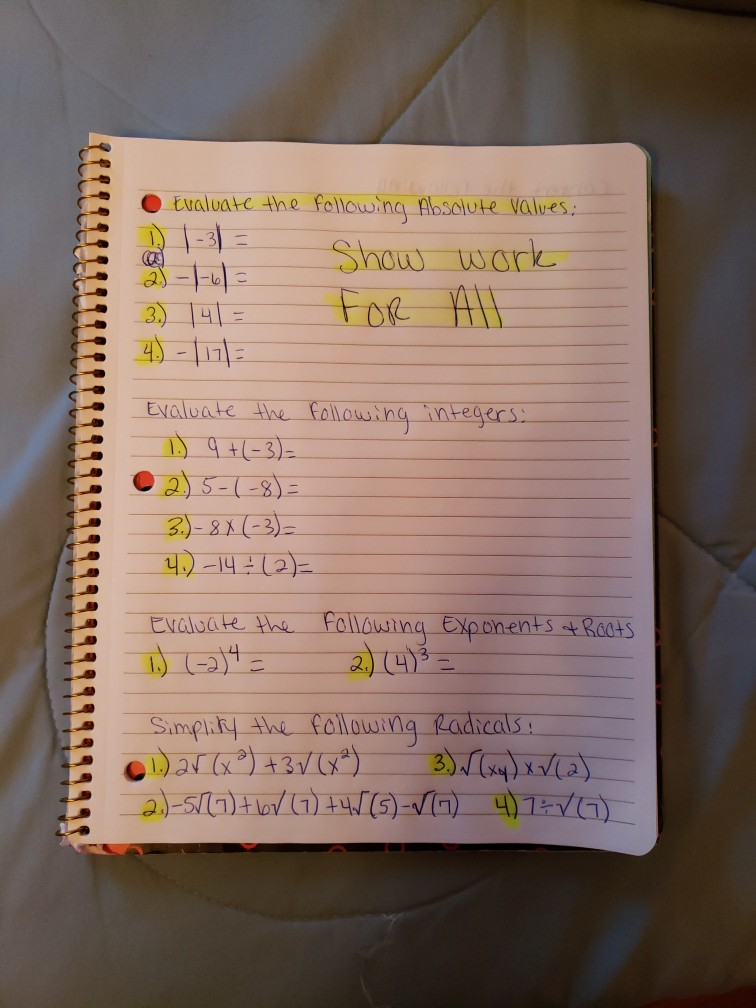 Evaluate the following Absolute Values:
1.) |-3| =
Show work
2.) -|-6| =
For All
3.) |4| =
4.) -|17| =
Evaluate the following integers:
1.) 9 + (-3) =
2.) 5 - (-8) =
3.) - 8 x (-3) =
4.) -14 ÷ (2) =
Evaluate the following Exponents + Roots
1.) (-2)⁴ = 2.) (4)³ =
Simplify the following Radicals:
1.) 2√(x²) + 3√(x²) 3.) √(xy) x √(2)
2.) -5√(7) + 6√(7) + 4√(5) - √(7) 4) 7 ÷ √(7)